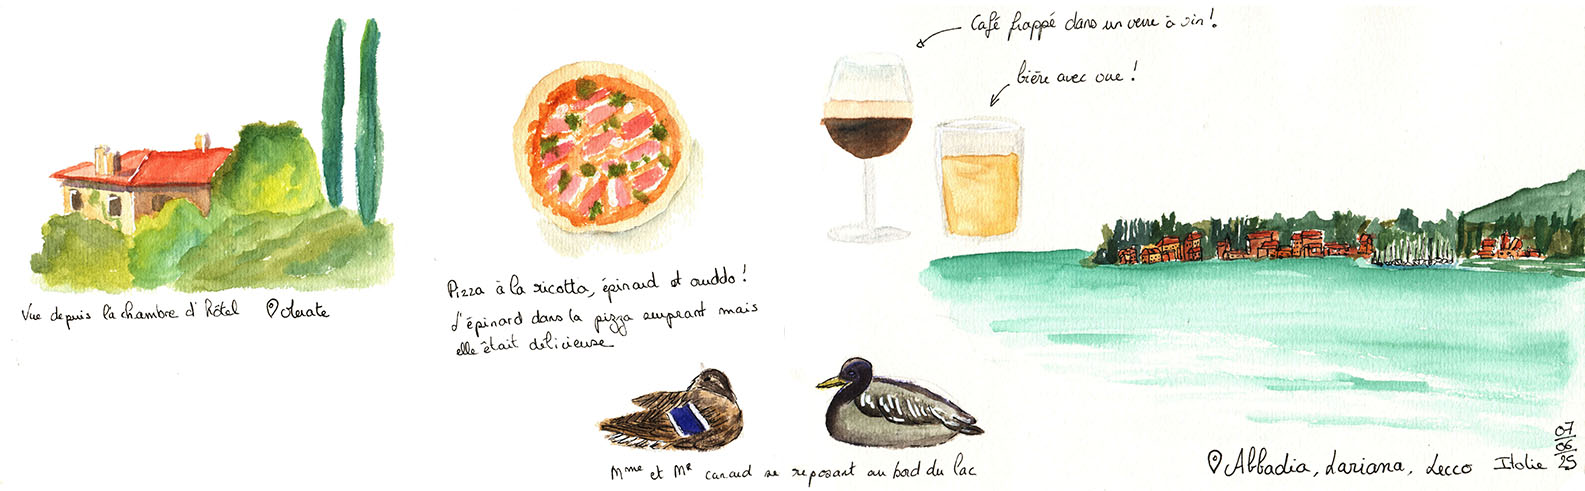 Café frappé dans un verre à vin !
bière avec vue !
Vue depuis la chambre d'hôtel Merate
Pizza à la ricotta, épinard et cruddo !
L'épinard dans la pizza surprant mais
elle était délicieuse
Mme et Mr canard se reposant au bord du lac
Abbadia, Lariana, Lecco Italie
07
06
25